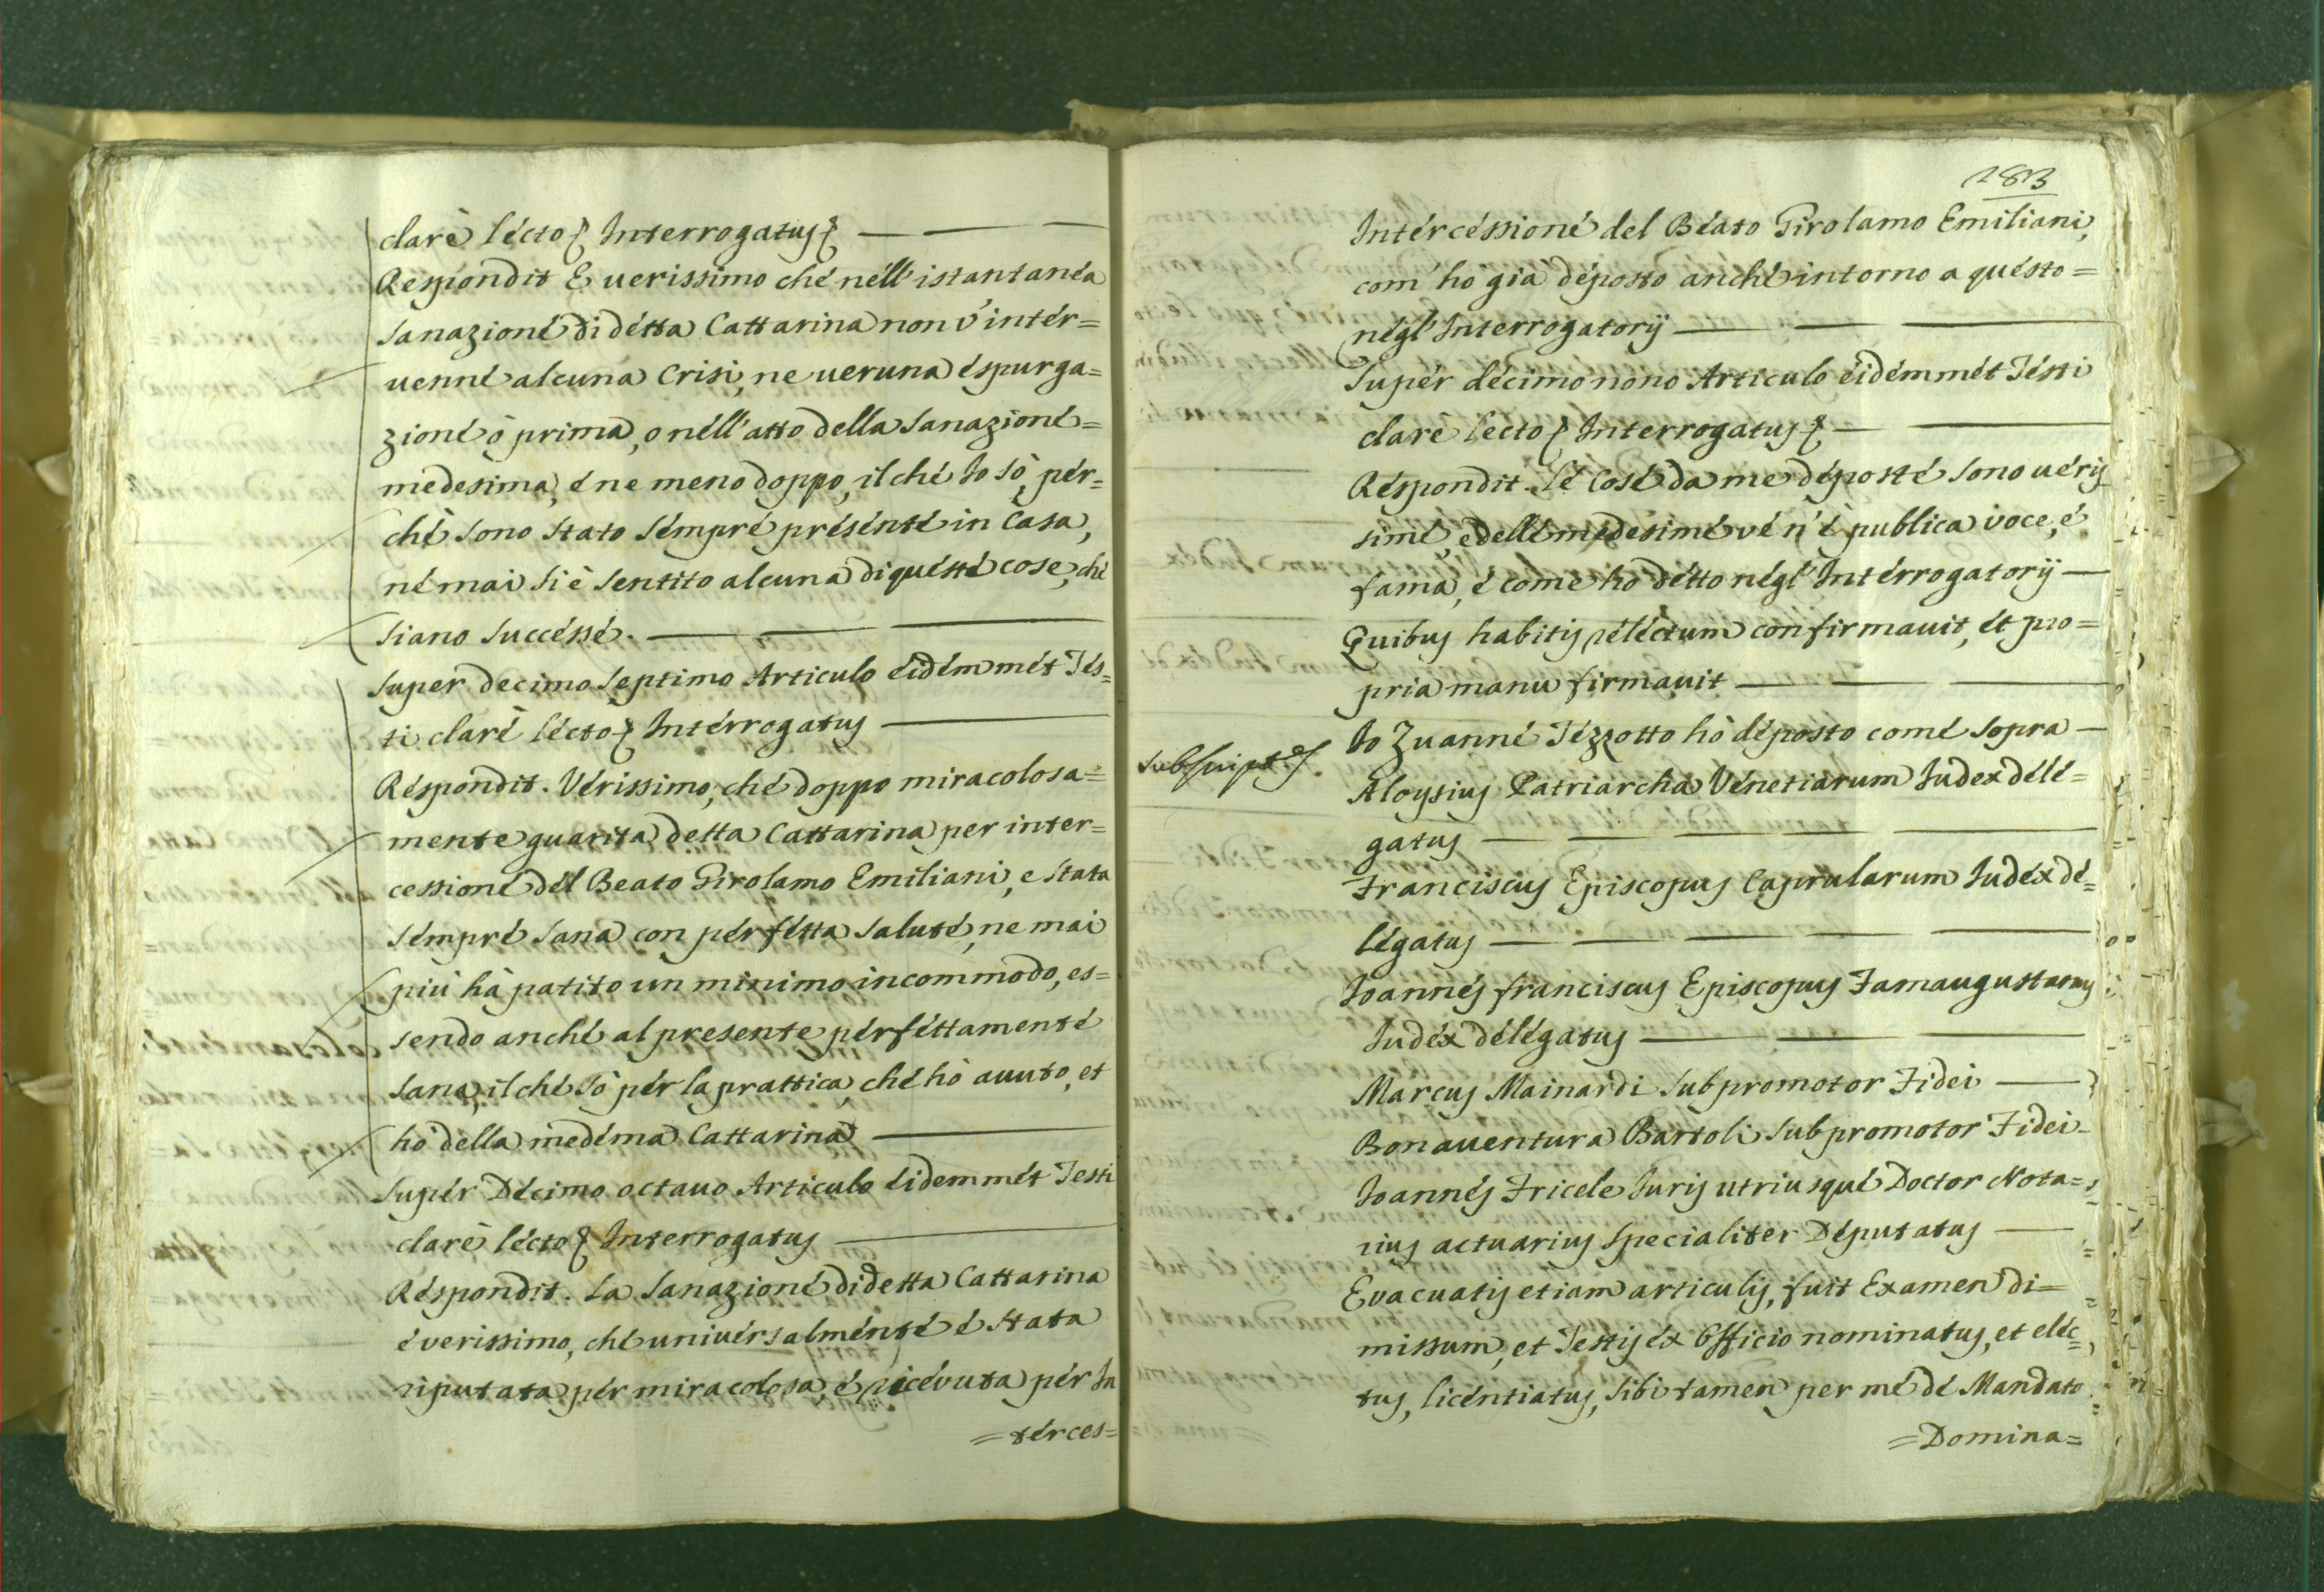 clarè lécto Interrogatus
Respondit E uerissimo ché néll'istantanéa
sanazioné di détta Cattarina non v'intér=
uenné alcuna Crisi, ne ueruna éspurga=
zioné ò prima, o néll'atto della sanazioné=
medesima, é ne meno doppo, il ché Io sò, pér=
ché sono stato sémpré présénté in Casa,
né mai si è sentito alcuna di quésté cose, ché
siano succéssé.
Super decimo septimo Articulo éidém mét Tés=
ti claré lécto Intérrogatus
Réspondit. Vérissimo, ché doppo miracolosa=
mente guarita detta Cattarina per inter=
cessioné dél Beato Girolamo Emiliani, e stata
sémpré sana con pérfétta saluté, ne mai
più hà patito un minimo incommodo, es=
sendo anché al presente pérféttamenté
sana, il ché sò pér la prattica, ché hò auuto, et
hò della medéma Cattarina
Supér Décimo octauo Articulo éidem mét Testi
clarè lécto Interrogatus
Réspondit. La sanazioné di detta Cattarina
é verissimo, ché univérsalménté é stata
riputata pér miracolosa, é ricévuta pér In
=térces=
283
Intércéssioné del Béato Girolamo Emiliani,
com' hò già déposto anché intorno a quésto=
négl' Interrogatorij
Supér décimo nono Articulo éidém mét Tésti
clarè lecto Interrogatus
Réspondit. Lé Cosé da me déposté sono uéris
simé, e dellé medesimé vé n'é publica voce, é
fama, é come ho détto négl' Intérrogatorij
Quibus habitis réléctum confirmauit, ét pro=
pria manu firmauit
Io Zuanné Tézzotto hò déposto comé sopra
Aloysius Patriarcha Vénetiarum Iudex délé=
gatus
Franciscus Episcopus Caprularum Iudéx dé=
légatus
Ioannés franciscus Episcopus Famaugustanus
Iudéx délégatus
Marcus Mainardi Subpromotor Fidei
Bonauentura Bartoli Subpromotor Fidei
Ioannés Fricele Iuris utriusqué Doctor Nota=
rius actuarius Specialiter Députatus
Evacuatis etiam articulis, fuit Examen di=
missum, et Testis éx Officio nominatus, et eléc=
tus, licéntiatus, sibi tamen per mé dé Mandato
=Domina=